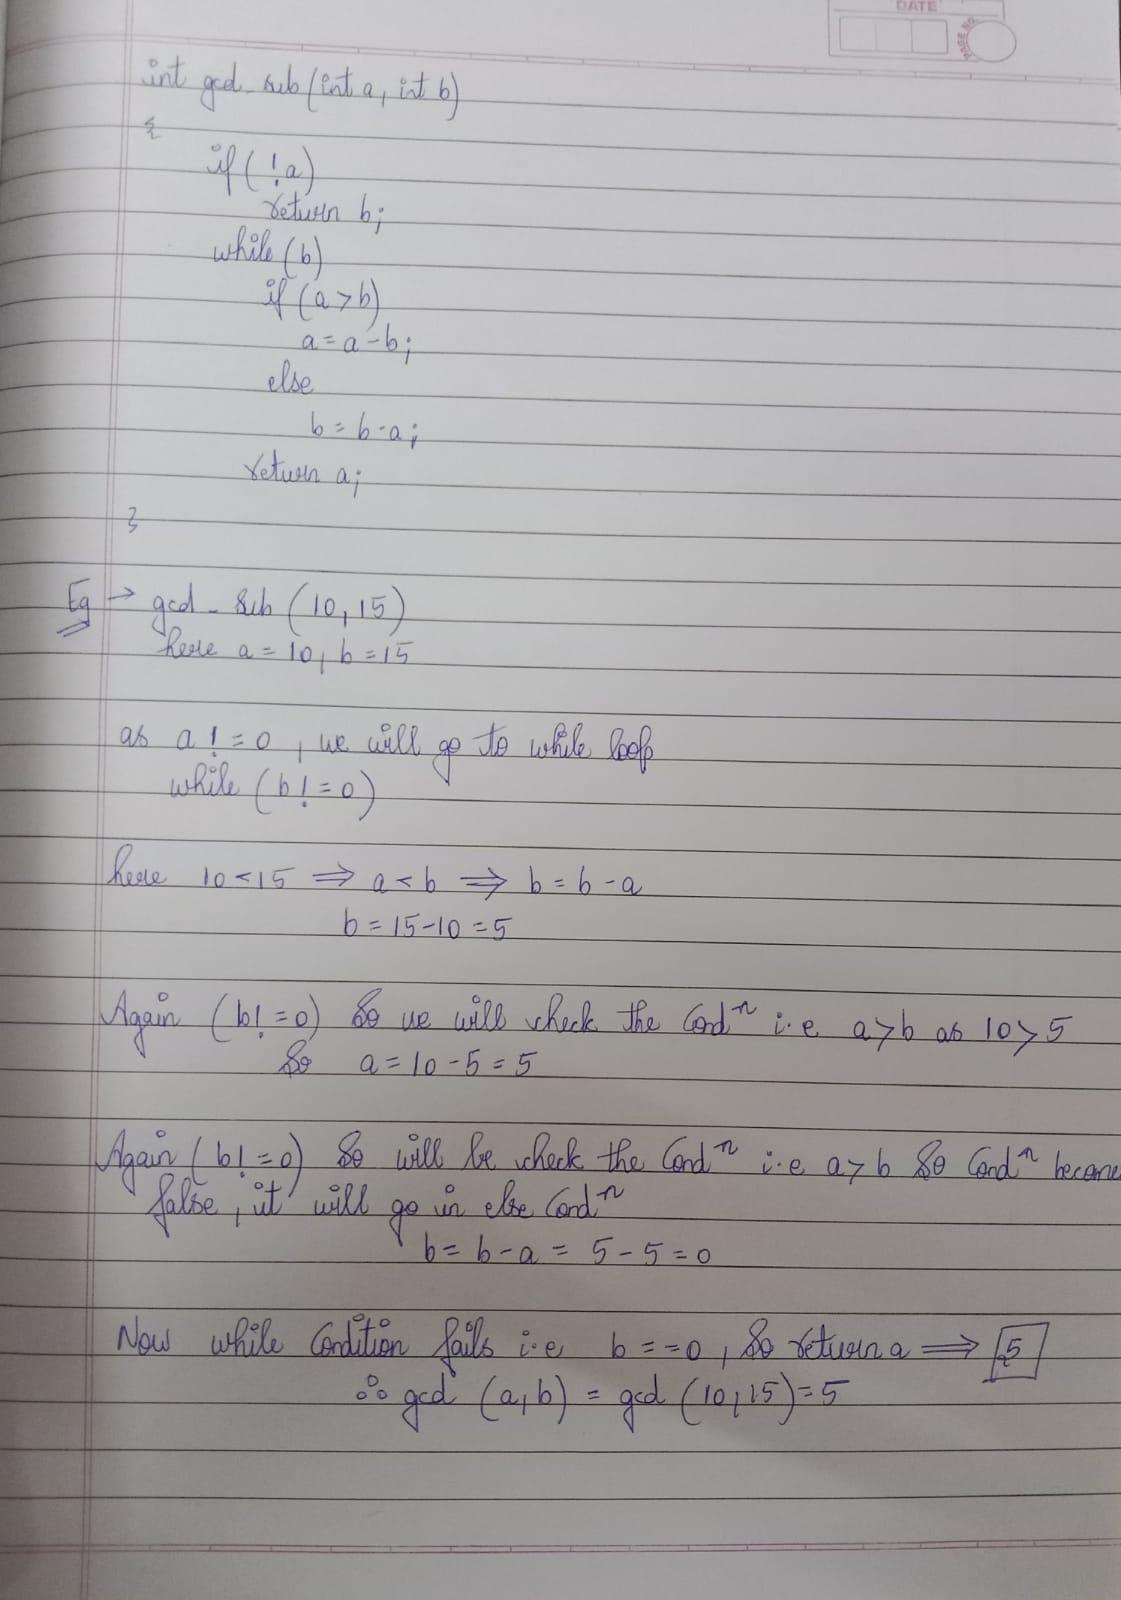 DATE
PAGE NO.
int gcd_sub(int a, int b)
{
if(!a)
return b;
while(b)
if(a>b)
a=a-b;
else
b=b-a;
return a;
}
Eg → gcd_sub(10,15)
here a=10, b=15
as a!=0, we will go to while loop
while(b!=0)
here 10<15 ⟹ a<b ⟹ b=b-a
b=15-10=5
Again (b!=0) So we will check the Condⁿ i.e a>b as 10>5
So a=10-5=5
Again (b!=0) So will be check the Condⁿ i.e a>b So Condⁿ become
false, it will go in else Condⁿ
b=b-a=5-5=0
Now while Condition fails i.e b==0, So return a ⟹ 5
∴ gcd (a,b) = gcd (10,15)=5